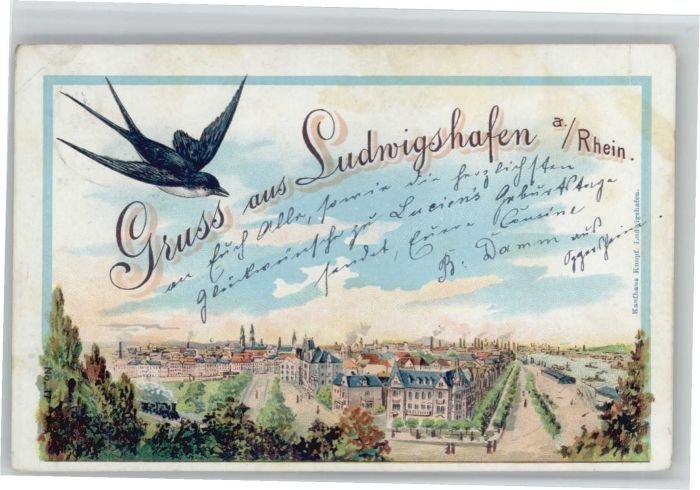 Gruss aus Ludwigshafen a./Rhein.
an Euch Alle, sowie die herzlichsten
Glückwünsche zu Lucien's Geburtstage
sendet, Eure Cousine
B. Damm aus
Oggersheim.
Kaufhaus Knopf, Ludwigshafen.
No. 17